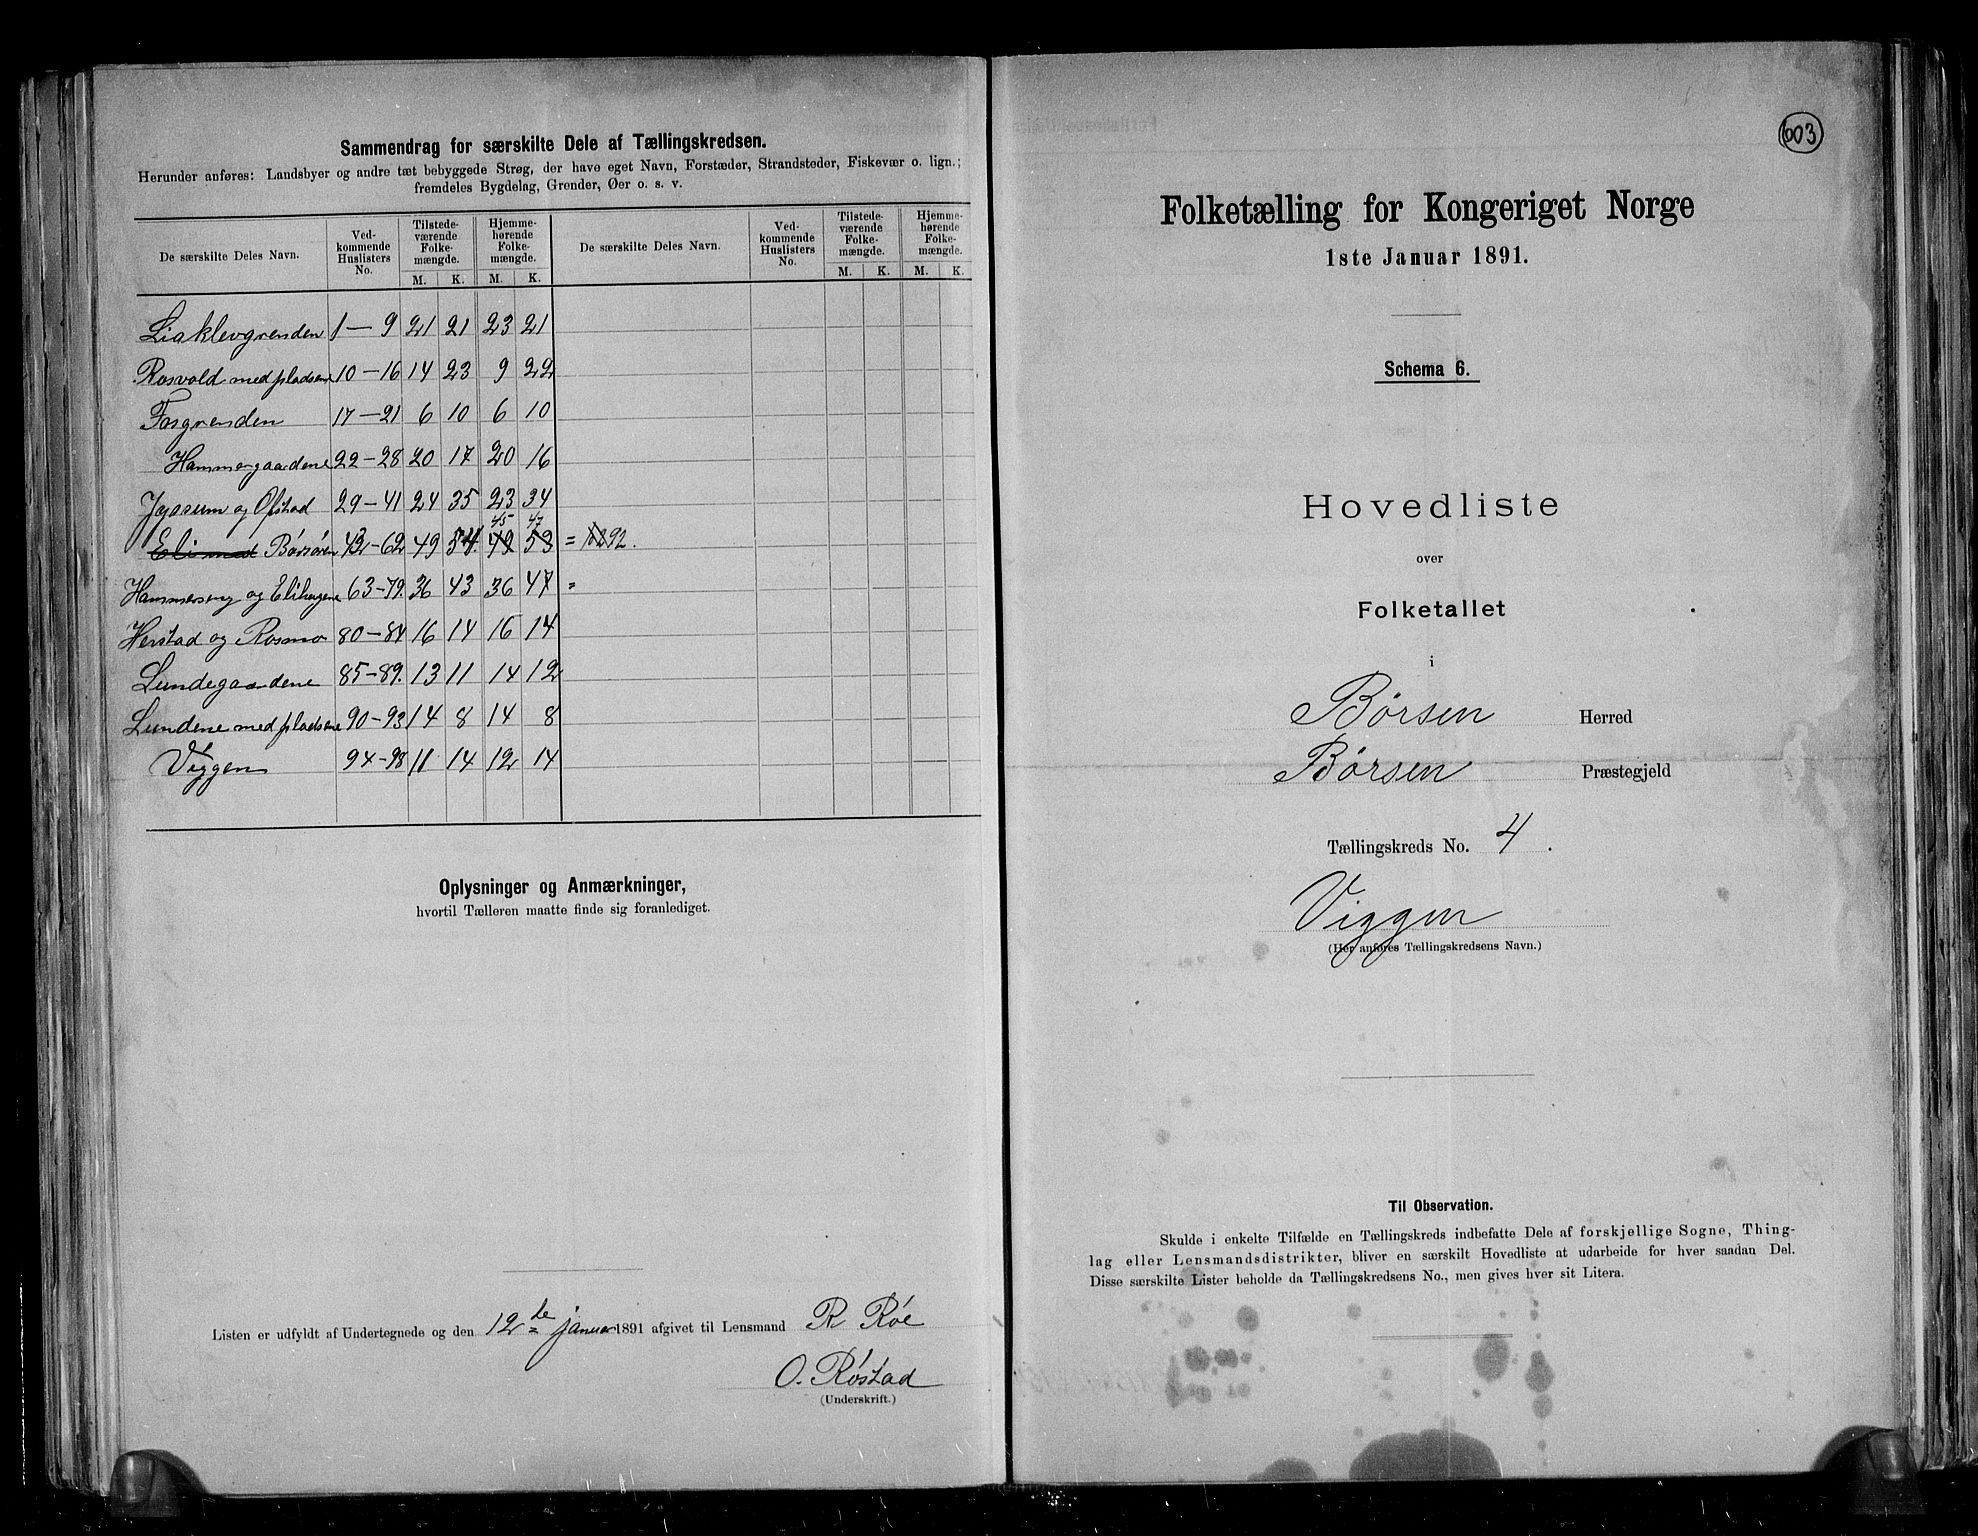 Sammendrag for særskilte Dele af Tællingskredsen.
Herunder anføres: Landsbyer og andre tæt bebyggede Strøg, der have eget Navn, Forstæder, Strandsteder, Fiskevær o. lign.;
fremdeles Bygdelag, Grender, Øer o. s. v.
De særskilte Deles Navn. Ved-kommende Huslisters No. Tilstede-værende Folke-mængde. M. K. Hjemme-hørende Folke-mængde. M. K. De særskilte Deles Navn. Ved-kommende Huslisters No. Tilstede-værende Folke-mængde. M. K. Hjemme-hørende Folke-mængde. M. K.
Liaklevgrenden 1-9 21 21 23 21
Rosvold med pladsene 10-16 14 23 9 22
Fosgrenden 17-21 6 10 6 10
Hammergaardene 22-28 20 17 20 16
Jyssum og Ofstad 29-41 24 35 23 34
45 47
Eli med Børsøren 42-62 49 54 49 53 = 92.
Hammerseng og Elihagene 63-79. 36 43 36 47 =
Herstad og Rosmo 80-84 16 14 16 14
Lundegaardene 85-89. 13 11 14 12
Lundene med pladsene 90-93 14 8 14 8
Viggen 94-98 11 14 12 14
Oplysninger og Anmærkninger,
hvortil Tælleren maatte finde sig foranlediget.
Listen er udfyldt af Undertegnede og den 12te januar 1891 afgivet til Lensmand R Röe
O. Röstad
(Underskrift.)
603
Folketælling for Kongeriget Norge
1ste Januar 1891.
Schema 6.
Hovedliste
over
Folketallet
i
Børsen Herred
Børsen Præstegjeld
Tællingskreds No. 4.
Viggen
(Her anføres Tællingskredsens Navn.)
Til Observation.
Skulde i enkelte Tilfælde en Tællingskreds indbefatte Dele af forskjellige Sogne, Thing-
lag eller Lensmandsdistrikter, bliver en særskilt Hovedliste at udarbeide for hver saadan Del.
Disse særskilte Lister beholde da Tællingskredsens No., men gives hver sit Litera.